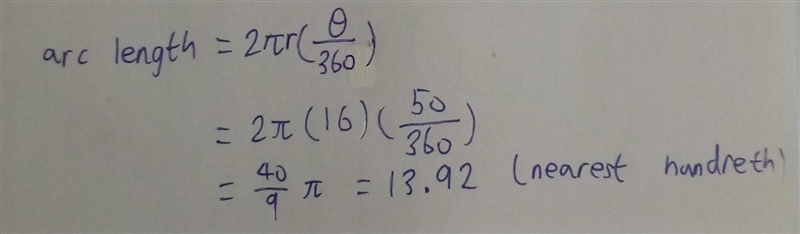 arc length = 2πr(θ/360)
= 2π(16)(50/360)
= 40/9 π = 13.92 (nearest handreth)